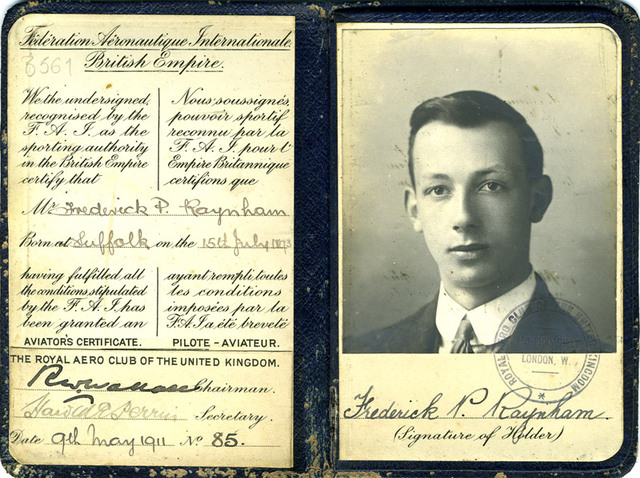 Fédération Aéronautique Internationale.
British Empire.
We the undersigned,
recognised by the
F. A. I. as the
sporting authority
in the British Empire
certify that
Nous soussignés,
pouvoir sportif
reconnu par la
F. A. I. pour l'
Empire Britannique
certifions que
Mr. Frederick P. Raynham
Born at Suffolk on the 15th July 1893
having fulfilled all
the conditions stipulated
by the F. A. I. has
been granted an
AVIATOR'S CERTIFICATE.
ayant rempli toutes
les conditions
imposées par la
F.A.I. a été breveté
PILOTE - AVIATEUR.
THE ROYAL AERO CLUB OF THE UNITED KINGDOM.
Chairman.
Harold E Perrin Secretary.
Date 9th May 1911 No 85.
ROYAL AERO CLUB OF THE UNITED KINGDOM
LONDON, W.
Frederick P. Raynham.
(Signature of Holder)